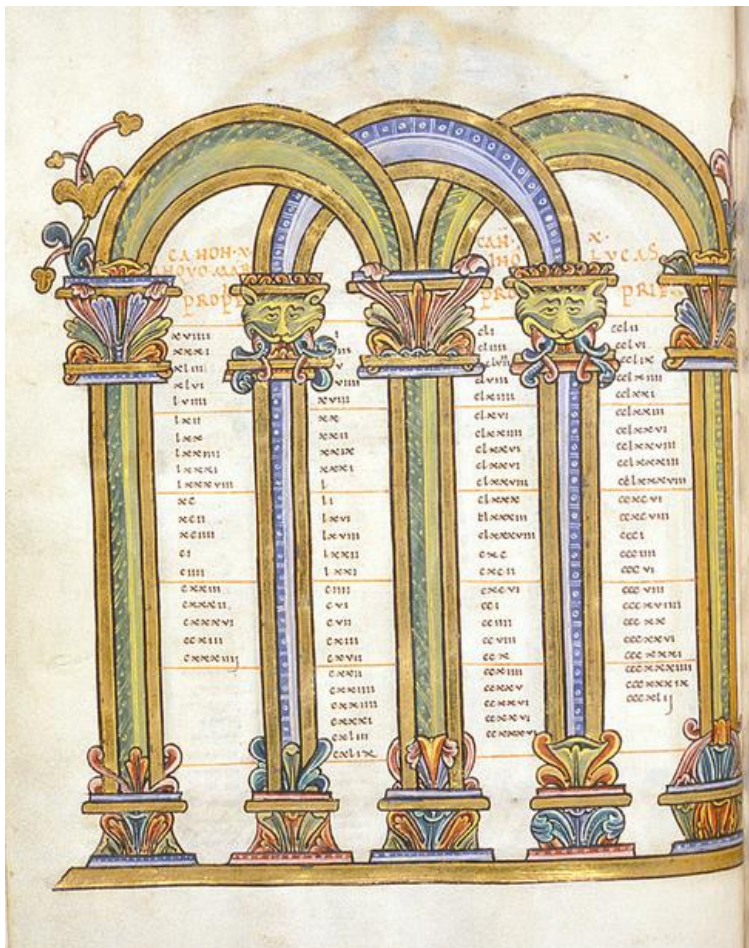 CANON·X·
NOVO·MAR
PROPI
xviiii
xxxi
xliii
xlvi
lviiii
lxii
lxx
lxxiiii
lxxxi
lxxxviii
xc
xcii
xciiii
ci
ciiii
cxxiii
cxxxii
cxxxvi
ccxiii
cxxxiiij
xviii
xx
xxii
xxix
xxxi
l
li
lxvi
lxviii
lxxii
lxxi
ciiii
cvi
cvii
cxiii
cxvii
cxxii
cxxiiii
cxxiiii
cxxxi
cxliii
cxlix
CAN· X·
INO LVCAS
PRO PRIE
cli
cliiii
clvii
clviii
clxiiii
clxvi
clxxiiii
clxxvi
clxxvi
clxxviii
clxxx
clxxxiii
clxxxviii
cxc
cxcii
cxcvi
cci
cciiii
ccviii
ccx
ccxiiii
ccxxv
ccxxvi
ccxxvi
ccxxxvi
cclii
cclvi
cclix
cclxiiii
cclxxi
cclxxiii
cclxxvi
cclxxviii
cclxxxiii
cclxxxviii
ccxcvi
ccxcviii
ccci
ccciiii
cccvi
cccviii
cccxviiii
cccxx
cccxxvi
cccxxxi
cccxxxiiii
cccxxxix
cccxlij